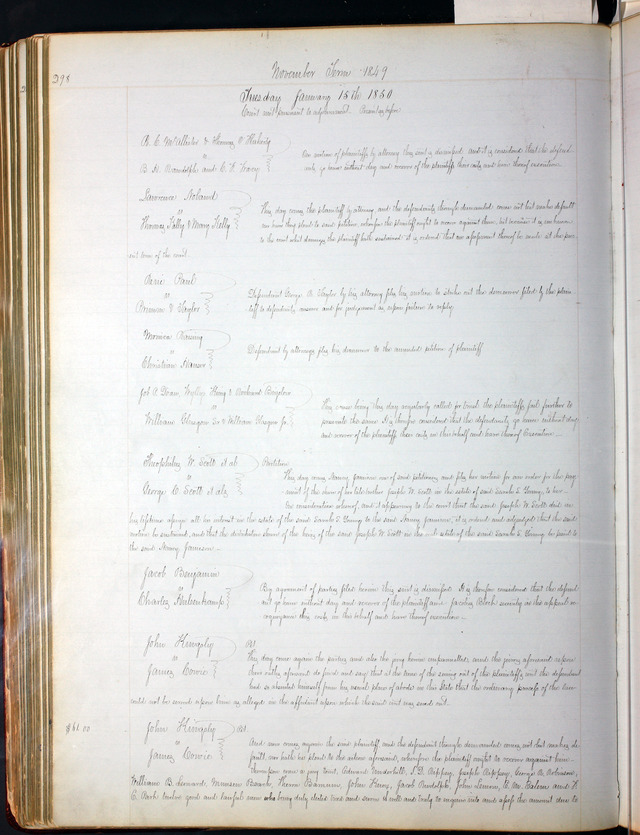 298
November Term 1849
Tuesday January 15th 1850
Court met pursuant to adjournment Present as before
B. C. McAllister & Thomas
vs
B. H. Randolph and C. F. Tracy
On motion of plaintiffs by attorney this suit is dismissed and it is considered that the defend-
ants go hence without day and recover of the plaintiffs their costs and have thereof execution
Lawrence
vs
Thomas Tally & Mary Kelly
This day comes the plaintiff by attorney and the defendants though demanded come not but make default
nor have they plead to said petition, wherefore the plaintiff ought to recover against them, but because it is unknown
to the court what damages the plaintiff hath sustained it is ordered that an assessment thereof be made at the pres-
ent term of the court
Paul
vs
& Taylor
Defendant George W Taylor by his attorney files his motion to strike out the demurrer filed by the plain-
tiff to defendants answer and for judgement as upon failure to reply
Monica
vs
Christian
Defendant by attorney files his demurrer to the amended petition of plaintiff
Job A. Doan, Wyllys King &
vs
William Glasgow Sr & William Glasgow Jr
This cause being this day regularly called for trial the plaintiffs fail further to
prosecute the same It is therefore considered that the defendants go hence without day
and recover of the plaintiffs their costs in this behalf and have thereof Execution
Theophilus W. Scott et al
vs
George W. Scott et als
Petition
This day comes Nancy Jameson one of said petitioners and files her motion for an order for the pay-
ment of the share of her late brother Joseph W. Scott in the estate of said Sarah E. Young, to her
On consideration whereof, and it appearing to the court that the said Joseph W. Scott did in
his lifetime assign all his interest in the estate of the said Sarah E. Young to the said Nancy Jameson, it is ordered and adjudged that the said
motion be sustained, and that the distributive share of the heirs of the said Joseph W. Scott in the estate of the said Sarah E. Young be paid to
the said Nancy Jameson
Jacob Benjamin
vs
Charles
By agreement of parties filed herein this suit is dismissed. It is therefore considered that the defend-
ant go hence without day and recover of the plaintiff and Jacobus Block security in the
costs in this behalf and have thereof execution
John Kingsly
vs
James Cowie
Att.
This day come again the parties and also the jury herein empannelled, and the jurors aforesaid upon
their oaths aforesaid do find and say that at the time of the suing out of the plaintiffs writ the defendant
had so absented himself from his usual place of abode in this State that the ordinary process of the law
could not be served upon him as alleged in the affidavit upon which the said writ was sued out.
$61.00
John Kingsly
vs
James Cowie
Att.
And now comes again the said plaintiff and the defendant though demanded comes not but makes de-
fault, nor hath he plead to the action aforesaid, wherefore the plaintiff ought to recover against him
Thereupon came a jury to wit, Edward Underhill, Joseph George W. Robinson,
William B. Leonard, Thomas John King, Jacob Randolph, John and
C. Bark twelve good and lawful men who being duly elected tried and sworn well and truly to enquire into and assess the amount due to